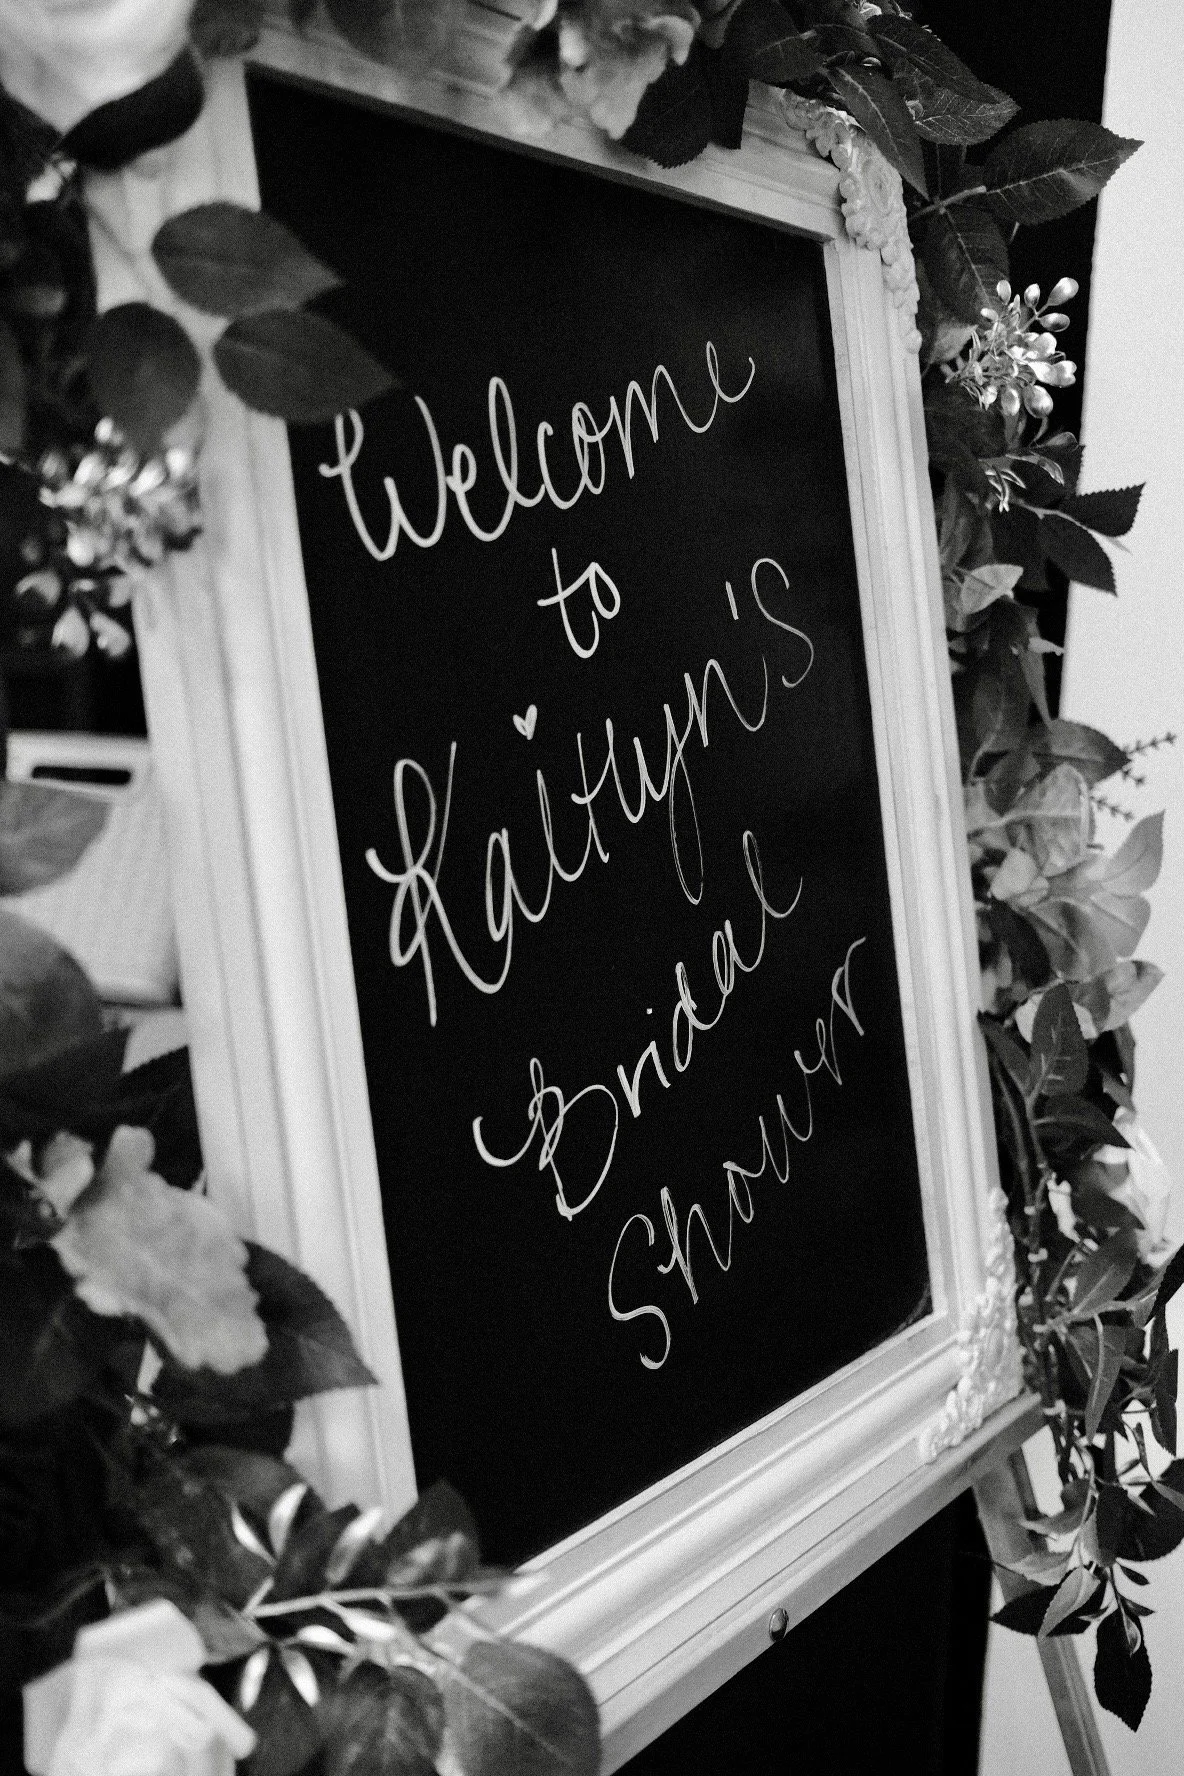 Welcome
to
Kaitlyn's
Bridal
Shower